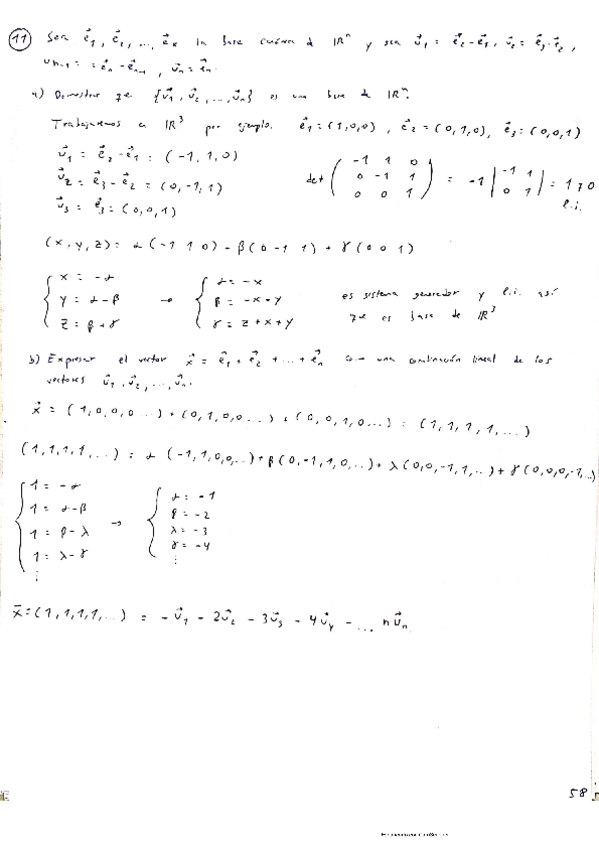 11 Sea e⃗₁, e⃗₂, ..., e⃗ₙ la base canónica d ℝⁿ y sea u⃗₁ = e⃗₂ - e⃗₁, u⃗₂ = e⃗₃ - e⃗₂,
uₙ₋₁ = e⃗ₙ - e⃗ₙ₋₁, u⃗ₙ = e⃗ₙ.
a) Demostrar que {u⃗₁, u⃗₂, ..., u⃗ₙ} es una base de ℝⁿ.
Trabajaremos en ℝ³ por ejemplo. e⃗₁ = (1,0,0), e⃗₂ = (0,1,0), e⃗₃ = (0,0,1)
u⃗₁ = e⃗₂ - e⃗₁ = (-1,1,0)
u⃗₂ = e⃗₃ - e⃗₂ = (0,-1,1)
u⃗₃ = e⃗₃ = (0,0,1)
det ( -1 1 0
0 -1 1
0 0 1 ) = -1 | -1 1
0 1 | = 1 ≠ 0
l.i.
(x,y,z) = α(-1 1 0) - β(0 -1 1) + γ(0 0 1)
x = -α
y = α - β
z = β + γ
→
α = -x
β = -x - y
γ = z + x + y
es sistema generador y l.i. así
que es base de ℝ³
b) Expresar el vector x⃗ = e⃗₁ + e⃗₂ + ... + e⃗ₙ como una combinación lineal de los
vectores u⃗₁, u⃗₂, ..., u⃗ₙ.
x⃗ = (1,0,0,0...) + (0,1,0,0...) + (0,0,1,0...) = (1,1,1,1,...)
(1,1,1,1,...) = α(-1,1,0,0,...) + β(0,-1,1,0,...) + λ(0,0,-1,1,...) + γ(0,0,0,-1,...)
1 = -α
1 = α - β
1 = β - λ
1 = λ - γ
⋮
→
α = -1
β = -2
λ = -3
γ = -4
⋮
x⃗ = (1,1,1,1,...) = -u⃗₁ - 2u⃗₂ - 3u⃗₃ - 4u⃗₄ - ... nu⃗ₙ
58